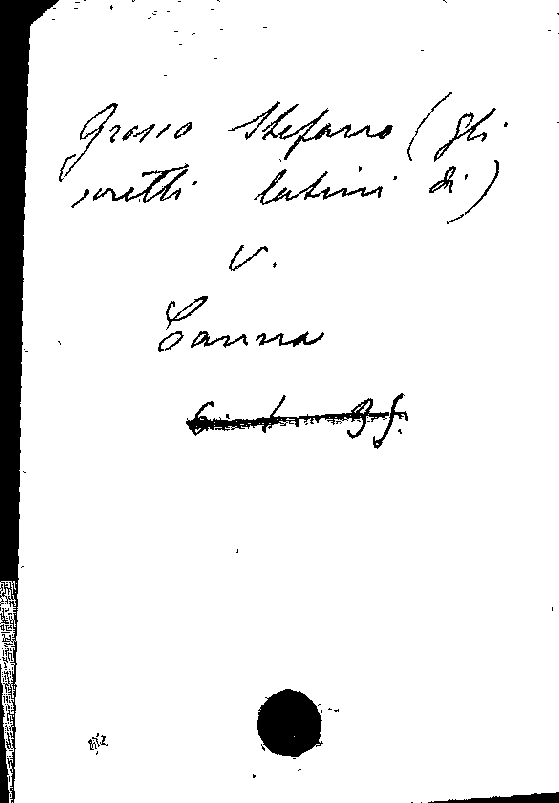 Grosso Stefano (gli
scritti latini di)
V.
Canna